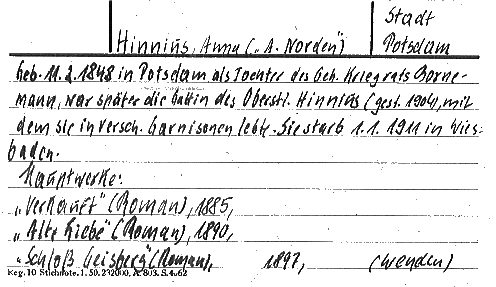 Stadt
Hinnius, Anna („A. Norden") Potsdam
Geb. 11.2.1848 in Potsdam als Tochter des Geh. Kriegrats Borne-
mann, war später die Gattin des Oberstl. Hinnius (gest. 1904), mit
dem sie in versch. Garnisonen lebte. Sie starb 1.1.1911 in Wies-
baden.
Hauptwerke:
„Verkauft" (Roman), 1885,
„Alte Liebe" (Roman), 1890,
„Schloß Geisberg" (Roman), 1897, (wenden)
Reg. 10 Stichnote. 1. 50. 232000, A. 803. S. 4. 62